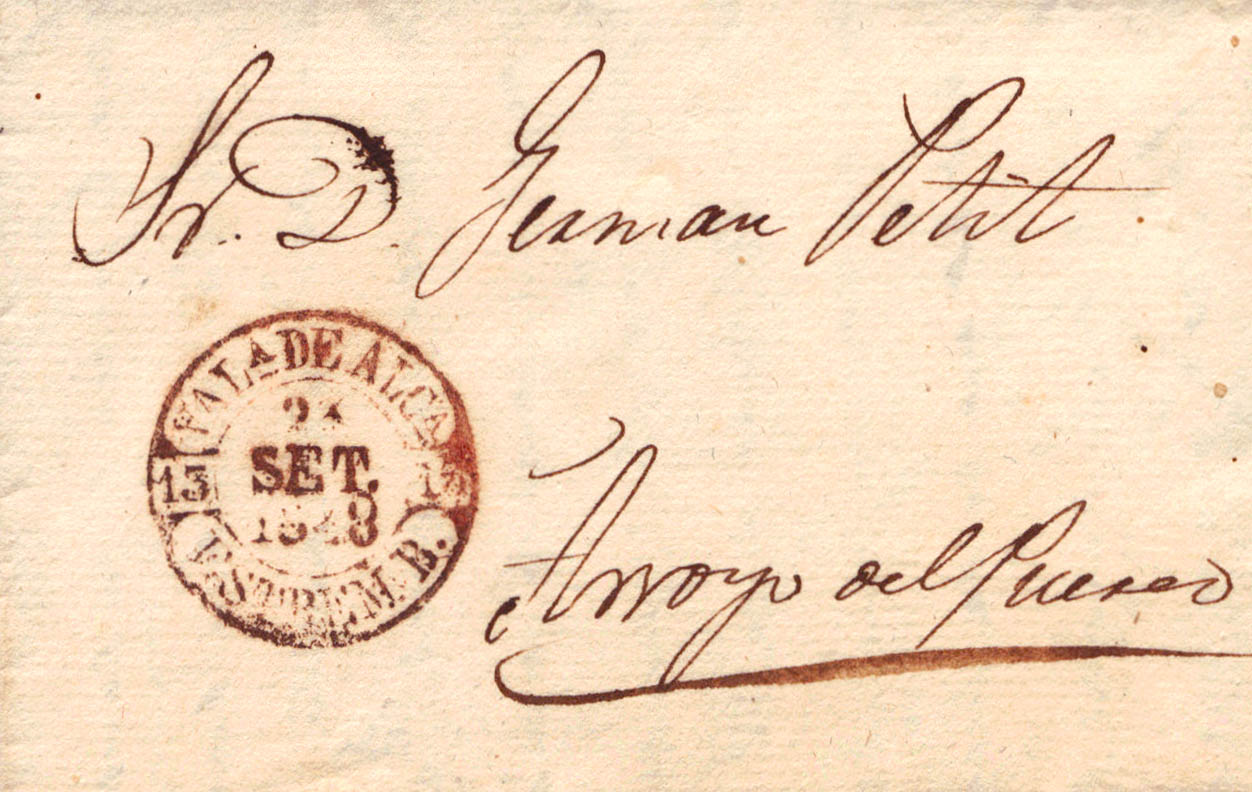 Sr. D. German Petit
VAL.A DE ALCA
SET.
1848
13 13
ESTREM. B.
Arroyo del Puerco